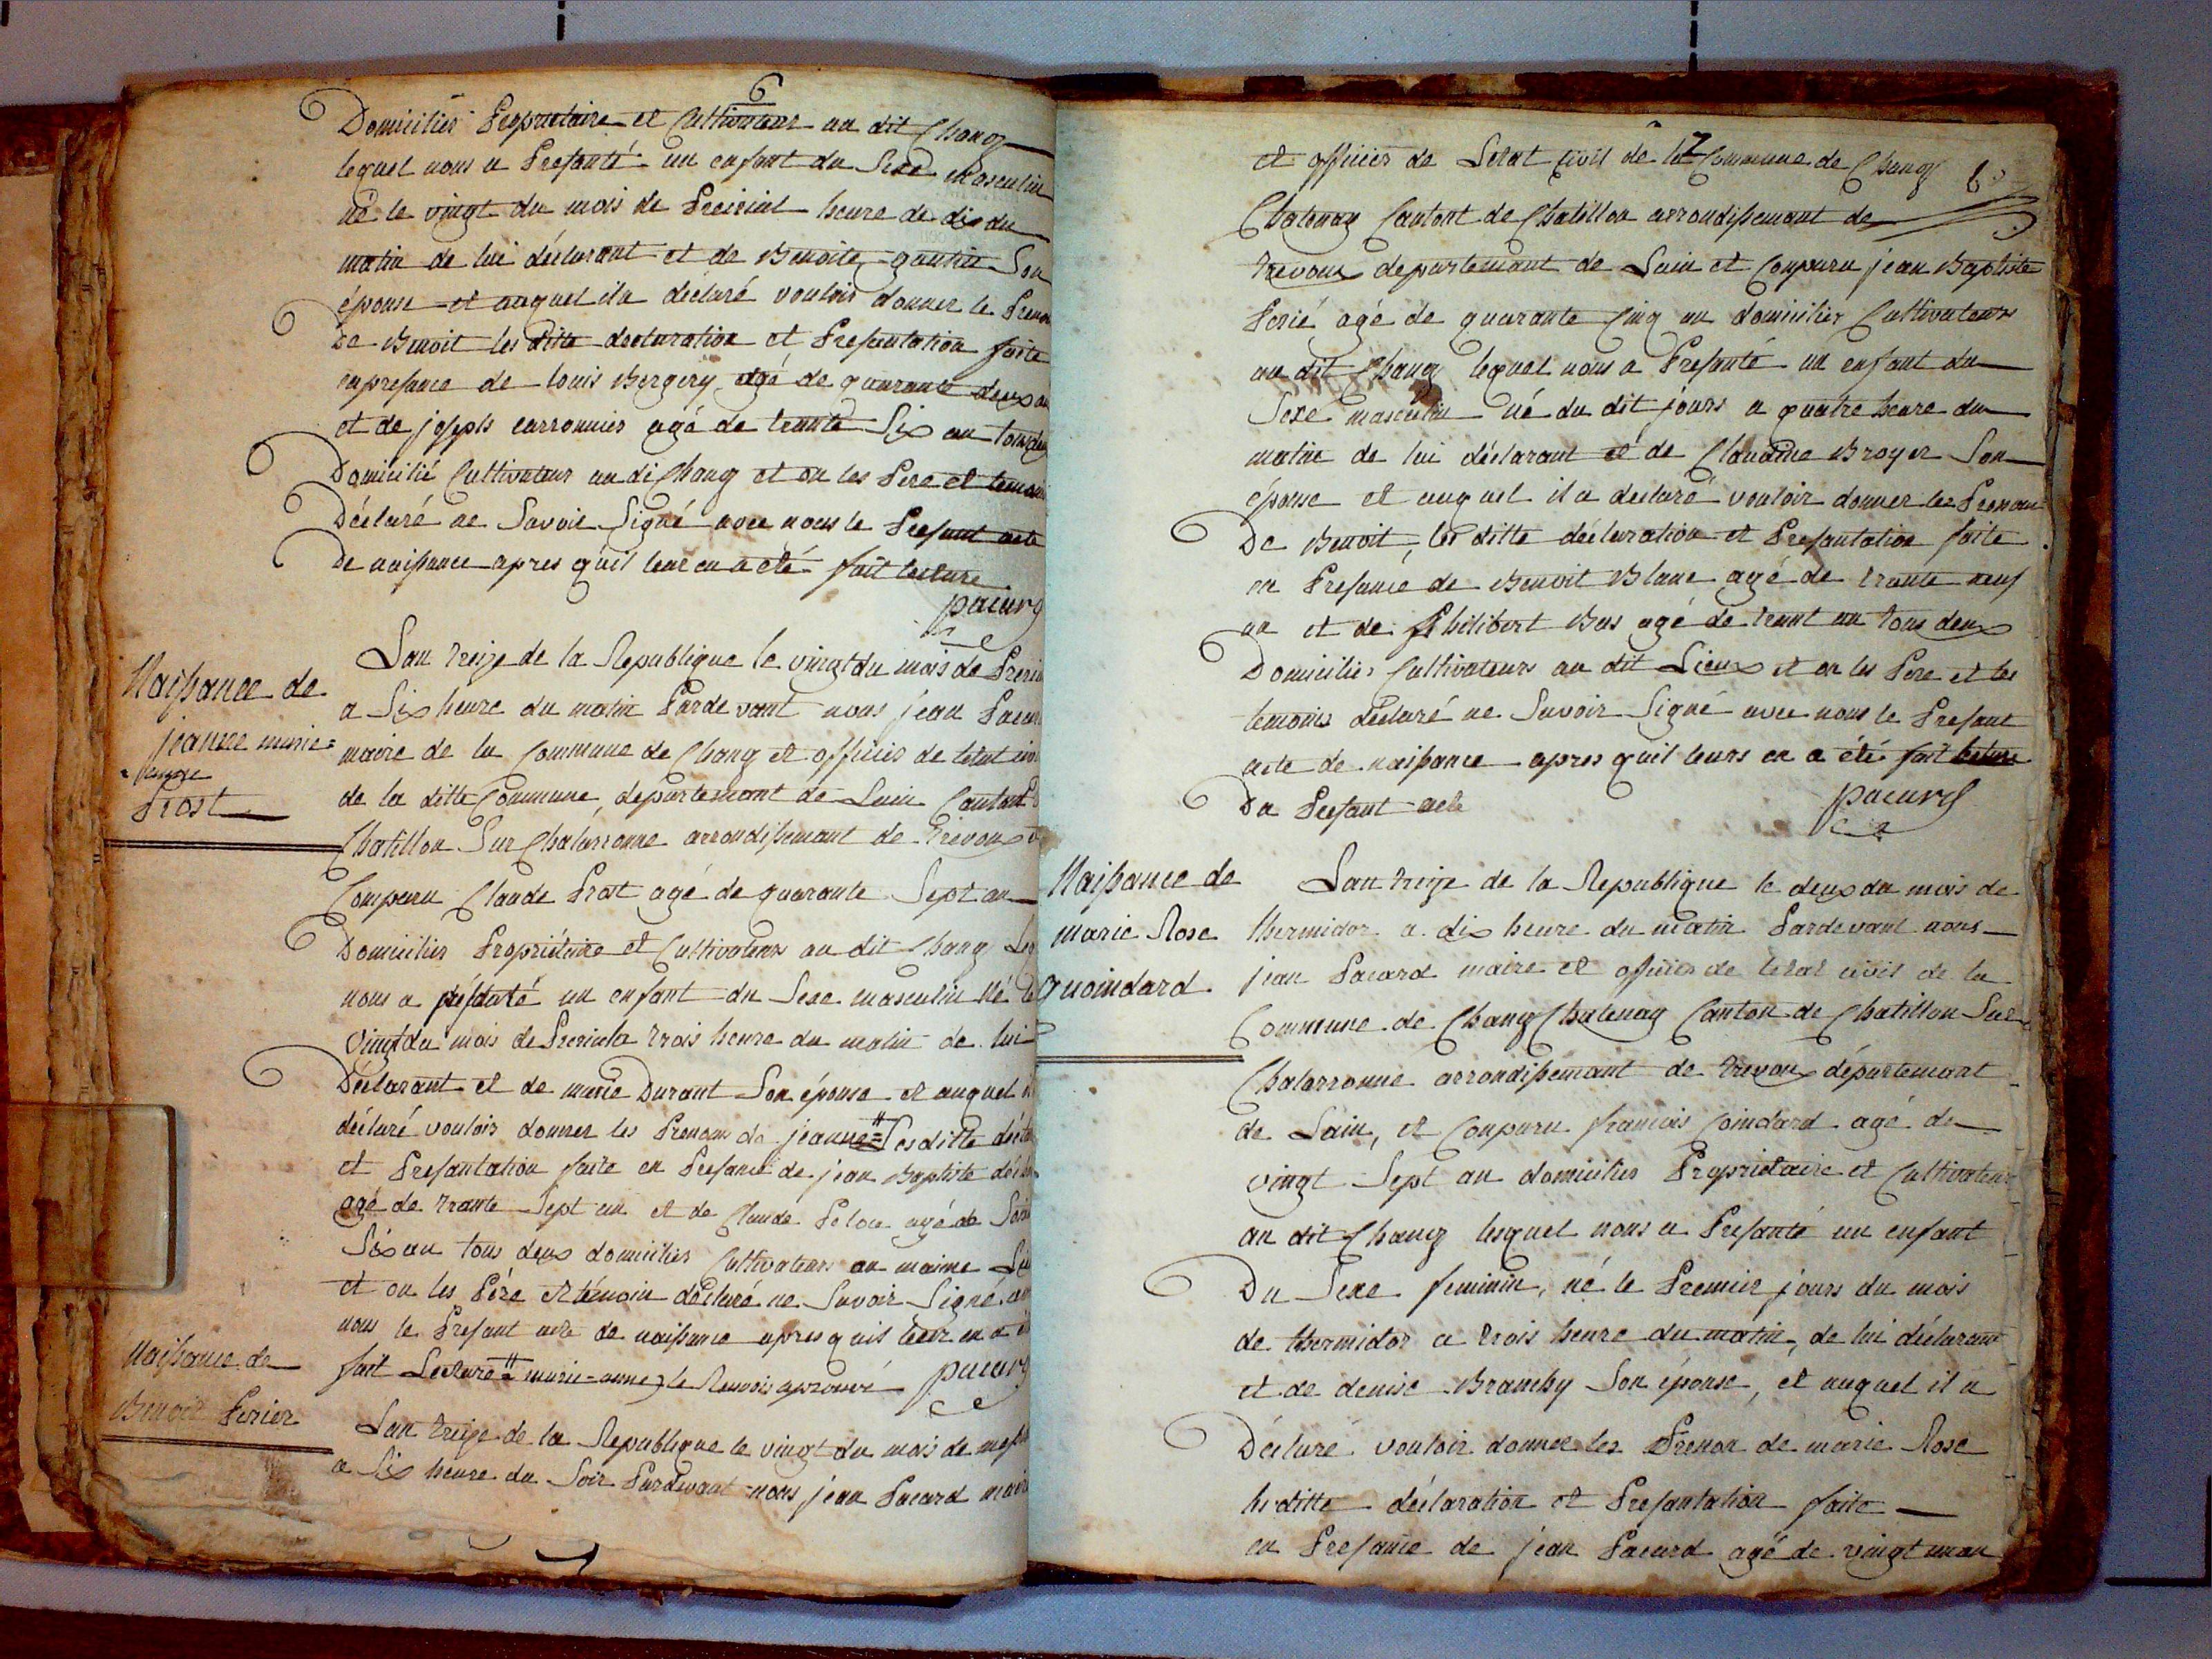 6
Domicilier Propriétaire et Cultivateur au dit Chang
lequel nous a Presanté un enfant du Sexe masculin
né le vingt du mois de Preirial heure de dix du
matin de lui déclarant et de Benoite gautier Son
épouse et auquel il a déclaré vouloir donner le Prenom
De Benoit les ditte declaration et Presentation faite
en presance de louis Bergery agé de quarante deux an
et de joseph carronnier agé de trante Six an tous deux
Domicilié Cultivateur au di Chang et on les Pere et temoin
Déclaré ne Savoir Signé avec nous le Presant acte
De naissance apres quil leur en a été fait lecture
pacard
Naissance de
jeanne marie=
Prost
Lan treize de la Republique le vingt du mois de Preri
a Six heure du matin Pardevant nous jean Pacar
maire de la Commune de Chang et officier de letat civi
de la ditte Commune, departemant de Lain Canton
Chatillon Sur Chalarronne arrondissemant de Trevoux
Comparu Claude Prost agé de quarante Sept an
Domicilier Propriétaire et Cultivateur au dit Chang Leq
nous a présanté un enfant du Sexe masculin né le
vingt du mois de Prerial a trois heure du matin de lui
Déclarant et de marie Durant Son épouse et auquel il
déclaré vouloir donner les Prenom de jeanne = Les ditte décla
et Presantation faite en Presance de jean Baptiste
agé de trante Sept an et de Claude Pelou agé de
Six an tous deux domicilier Cultivateurs au maime Lie
et on les Pére et témoin déclaré ne Savoir Signé av
nous le Presant acte de naissance apres quil leur en a é
fait Lecture = marie=anne, le Renvois aprouvé pacard
Naissance de
Benoit Perier
Lan treize de la Republique le vingt du mois de mess
a Six heure du Soir Pardevant nous jean Pacard maire
7
et officier de Letat civil de la Commune de Chang
Chatenay Cantont de Chatillon arrondissemant de
trevoux departemant de Lain et Comparu jean Baptiste
Perié agé de quarante Cinq an domicilier Cultivateurs
au dit Chang lequel nous a Presanté un enfant du
Sexe masculin né du dit jours a quatre heure du
matin de lui déclarant et de Claudine Broyer Son
épouse et auquel il a déclaré vouloir donner les Prenom
De Benoit, les ditte déclaration et Presantation faite
en Presance de Benoit Blanc agé de trante neuf
an et de Philibert Bas agé de trant an tous deux
Domicilier Cultivateurs au dit Lieux et on les Pere et les
temoins déclaré ne Savoir Signé avec nous le Presant
acte de naissance apres quil leurs en a été fait lecture
Du Presant acte
pacard
Naissance de
marie Rose
Quoindard
Lan treize de la Republique le deux du mois de
thermidor a dix heure du matin Pardevant nous
jean Pacard maire et officier de letat civil de la
Commune de Chang Chatenay Canton de Chatillon Sur
Chalarronne arrondissemant de trevoux département
de Lain, et Comparu francois Coindard agé de
vingt Sept an domicilier Propriétaire et Cultivateur
au dit Chang lesquel nous a Presanté un enfant
Du Sexe feminin, né le Premier jours du mois
de thermidor a trois heure du matin, de lui déclarant
et de denise Branchy Son épouse, et auquel il a
Déclaré vouloir donner les Prenon de marie Rose
les ditte déclaration et Presantation faite
en Presance de jean Pacard agé de vingt un an